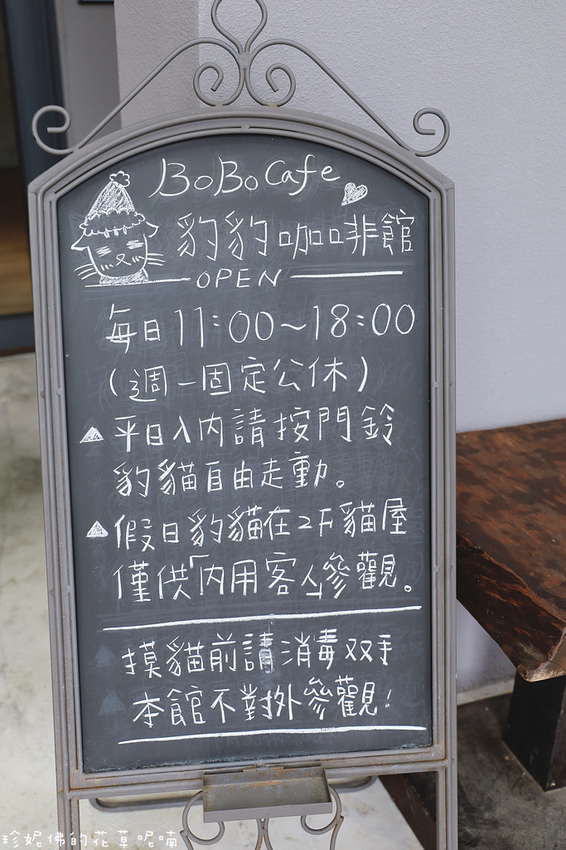 BoBo Cafe
豹豹咖啡館
OPEN
每日11:00～18:00
(週一固定公休)
平日入內請按門鈴
豹貓自由走動。
假日豹貓在2F貓屋
僅供「內用客人」參觀。
摸貓前請消毒双手
本館不對外參觀!
珍妮佛的花草呢喃